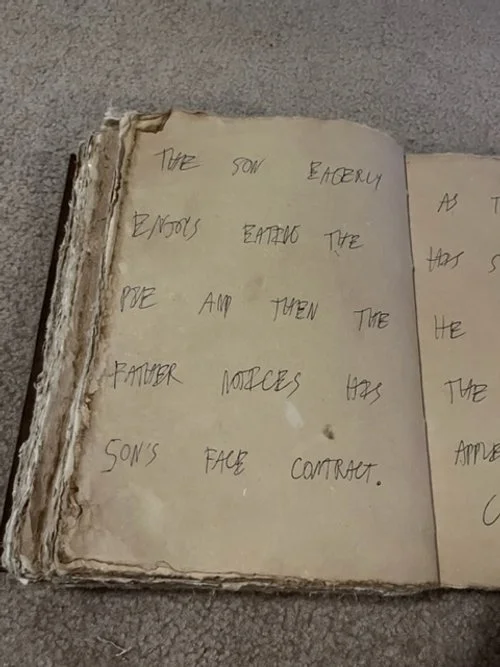 THE SON EAGERLY
ENJOYS EATING THE
PIE AND THEN THE
FATHER NOTICES HIS
SON'S FACE CONTRACT.
AS
HIS
HE
THE
APPLE